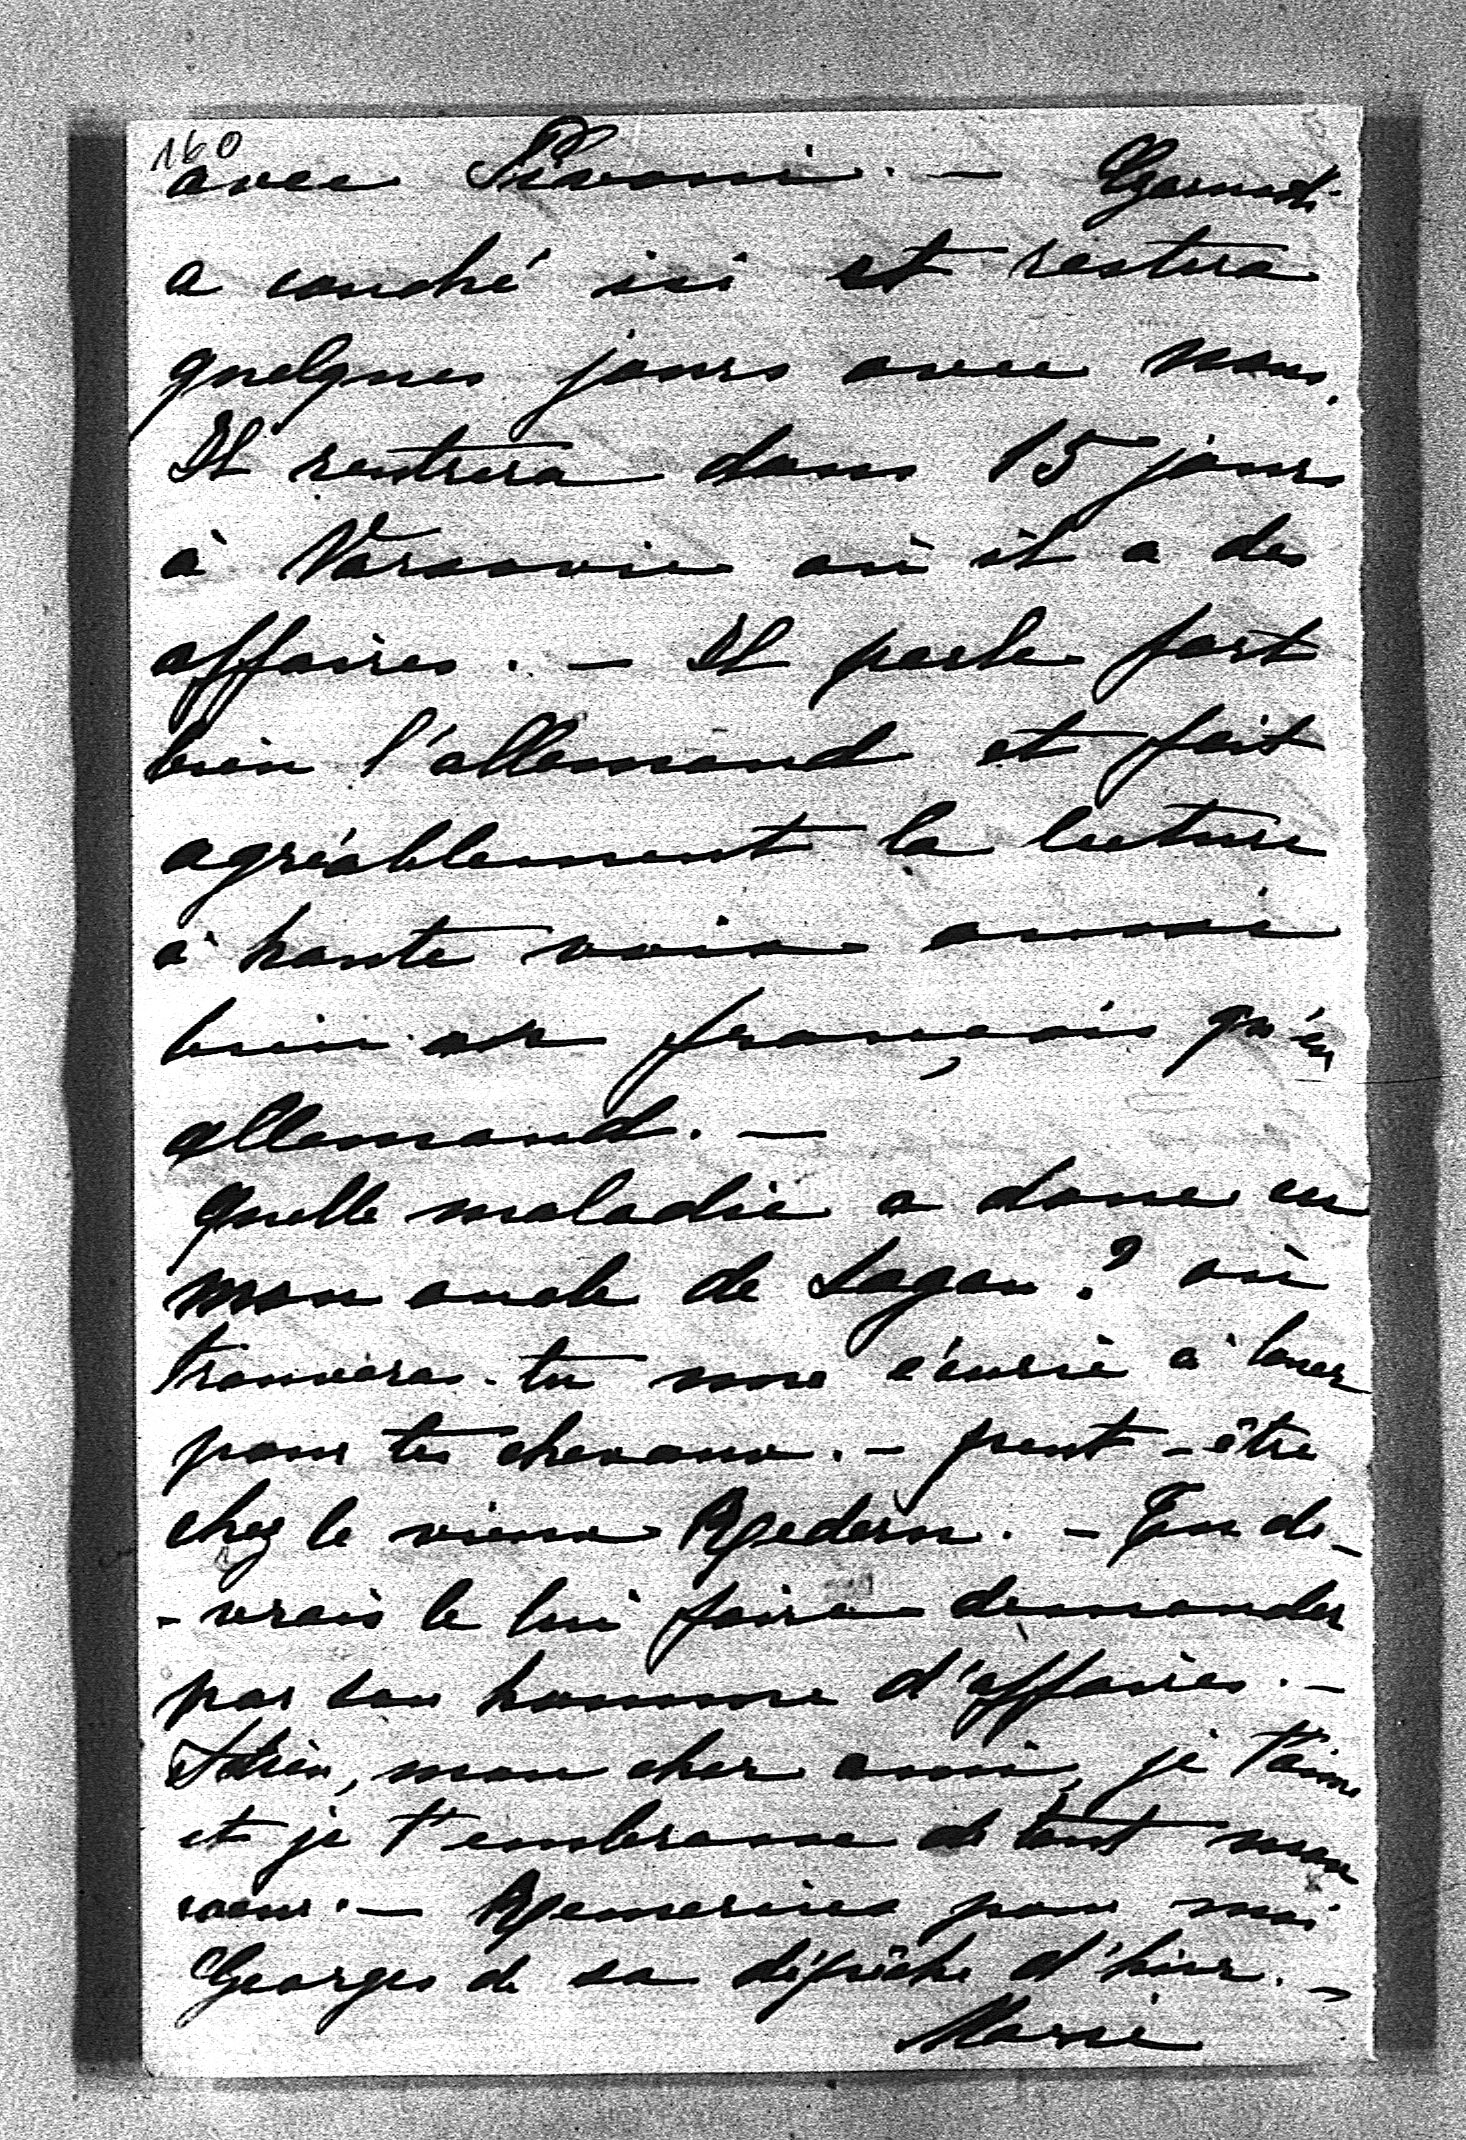 160
avec Pivoni. —
a couché ici et restera
quelques jours avec nous.
Il rentrera dans 15 jours
à Varsovie où il a des
affaires. — Il parle fort
bien l'allemand et fait
agréablement la lecture
à haute voix aussi
bien en français qu'en
allemand. —
Quelle maladie a donc eu
mon oncle de Sagan? où
trouveras-tu une écurie à louer
pour tes chevaux. — peut-être
chez le vieux Redern. — Tu de-
-vrais le lui faire demander
par son homme d'affaires. —
Adieu, mon cher ami, je t'aime
et je t'embrasse de tout mon
coeur. — Remercies pour moi
Georges de sa dépêche d'hier. —
Marie